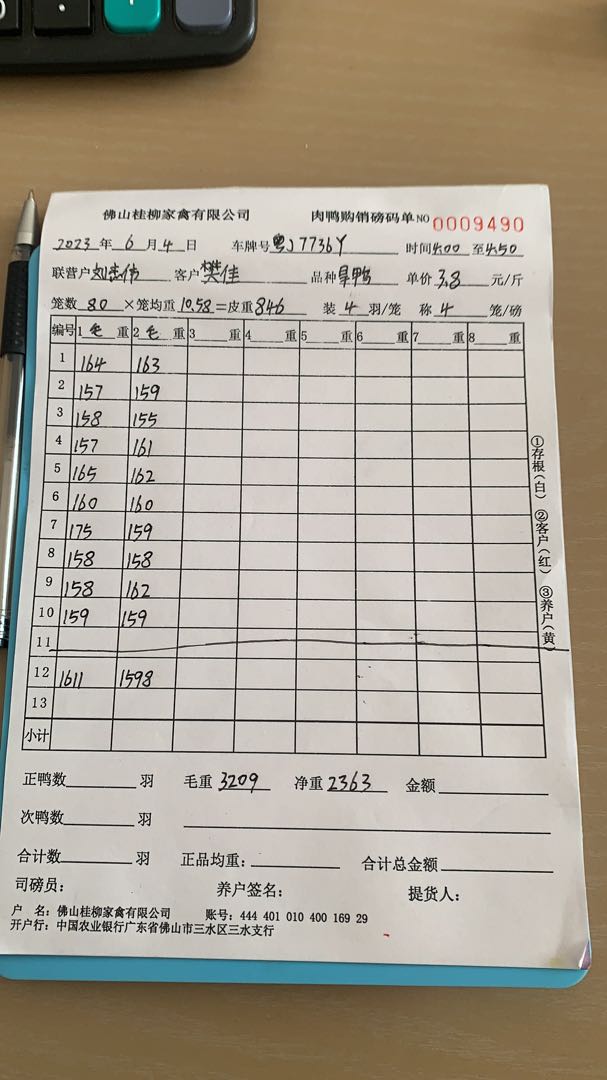 佛山桂柳家禽有限公司 肉鸭购销磅码单 NO 0009490
2023 年 6 月 4 日 车牌号 粤J7736Y 时间 4:00 至 4:50
联营户 客户 樊佳 品种 单价 3.8 元/斤
笼数 80 ×笼均重 10.58 =皮重 846 装 4 羽/笼 称 4 笼/磅
编号 1 毛 重 2 毛 重 3 重 4 重 5 重 6 重 7 重 8 重
1 164 163
2 157 159
3 158 155
4 157 161
5 165 162
6 160 160
7 175 159
8 158 158
9 158 162
10 159 159
11
12 1611 1598
13
小计
①存根(白) ②客户(红) ③养户(黄)
正鸭数 羽 毛重 3209 净重 2363 金额
次鸭数 羽
合计数 羽 正品均重: 合计总金额
司磅员: 养户签名: 提货人:
户 名: 佛山桂柳家禽有限公司 账号: 444 401 010 400 169 29
开户行: 中国农业银行广东省佛山市三水区三水支行